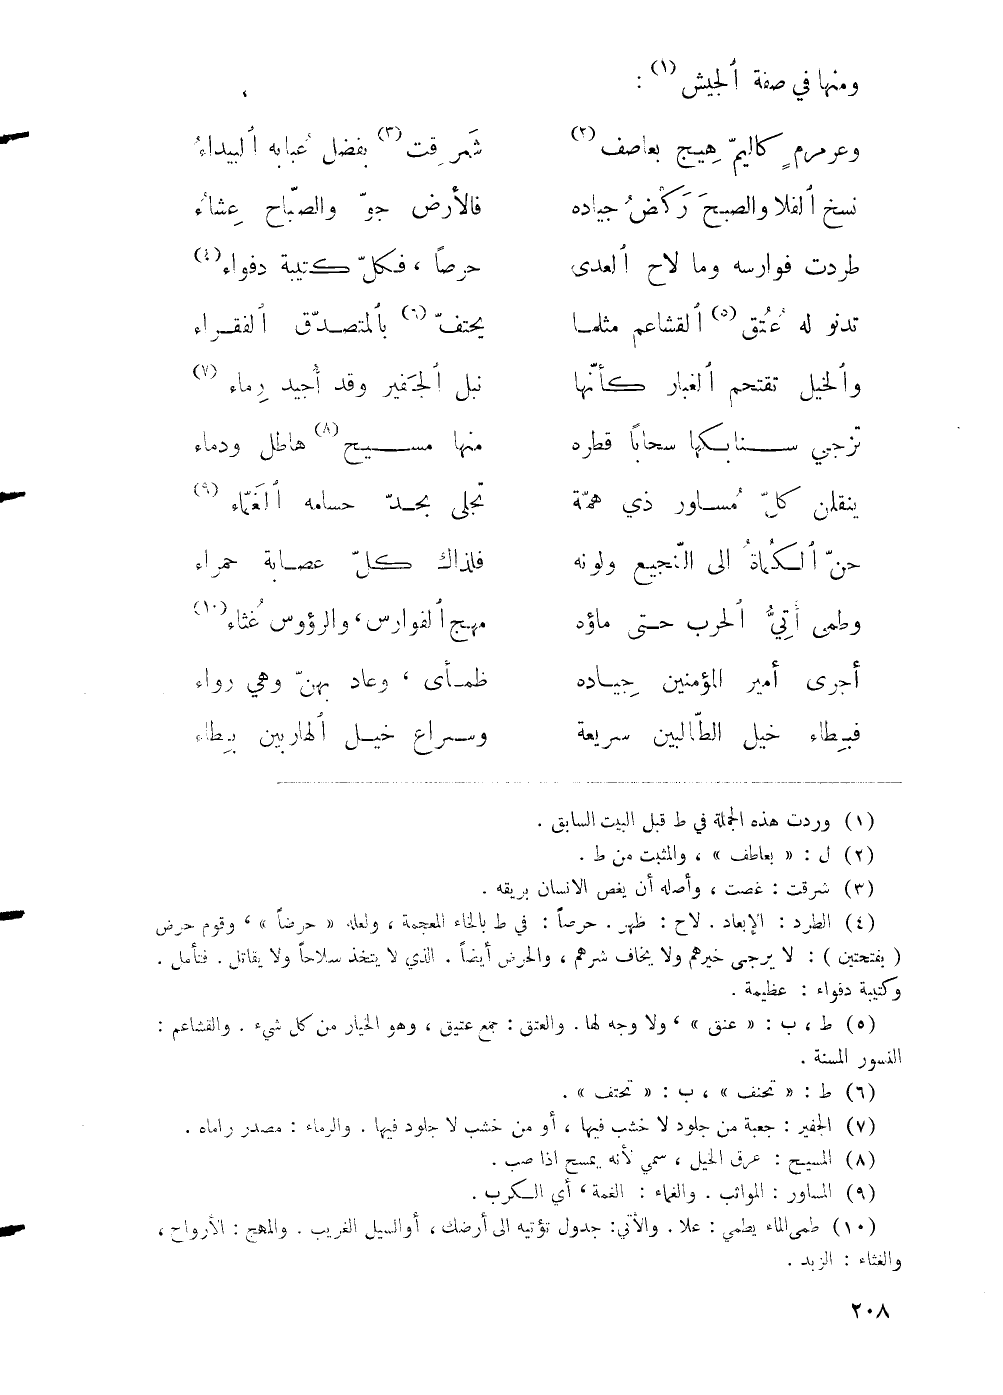 ومنها في صفة ٱلجيش (١) :
وعرمرمٍ كاليمّ هِيج بعاصف (٢) شَرِقت (٣) بفضل عُبابه ٱلبيداءُ
نسخ ٱلفلا والصبحَ رَكْضُ جياده فالأرض جوّ والصّباح عِشاءُ
طردت فوارسه وما لاح ٱلعدى حرصاً ، فكلّ كتيبة دفواء (٤)
تدنو له عُتق (٥) ٱلقشاعم مثلما يحتفّ (٦) بٱلمتصدّق ٱلفقراء
وٱلخيل تقتحم ٱلغبار كأنّها نبل ٱلجَفير وقد أُجيد رِماء (٧)
تزجي سنابكها سحاباً قطره منها مسيح (٨) هاطل ودماء
ينقلن كلّ مُساور ذي همّة تجلى بحدّ حسامه ٱلغَمّاء (٩)
حنّ ٱلكُماةُ الى النّجيع ولونه فلذاك كلّ عصابة حمراء
وطمى أَتِيُّ ٱلحرب حتى ماؤه مهج ٱلفوارس ، والرؤوس غُثاء (١٠)
أجرى أمير المؤمنين جِياده ظمأى ، وعاد بهنّ وهي رواء
فبِطاء خيل الطّالبين سريعة وسراع خيل ٱلهاربين بِطاء
(١) وردت هذه الجملة في ط قبل البيت السابق .
(٢) ل : « بعاطف » ، والمثبت من ط .
(٣) شرقت : غصت ، وأصله أن يغص الانسان بريقه .
(٤) الطرد : الإبعاد . لاح : ظهر . حرصاً : في ط بالخاء المعجمة ، ولعله « حرضاً » ، وقوم حرض
( بفتحتين ) : لا يرجى خيرهم ولا يخاف شرهم ، والحرض أيضاً . الذي لا يتخذ سلاحاً ولا يقاتل . فتأمل .
وكتيبة دفواء : عظيمة .
(٥) ط ، ب : « عنق » ، ولا وجه لها . والعتق : جمع عتيق ، وهو الخيار من كل شيء . والقشاعم :
النسور المسنة .
(٦) ط : « تحنف » ، ب : « تحتف » .
(٧) الجفير : جعبة من جلود لا خشب فيها ، أو من خشب لا جلود فيها . والرماء : مصدر راماه .
(٨) المسيح : عرق الخيل ، سمي لأنه يمسح اذا صب .
(٩) المساور : المواثب . والغماء : الغمة ، أي الكرب .
(١٠) طمى الماء يطمي : علا . والأتي : جدول تؤتيه الى أرضك ، أو السيل الغريب . والمهج : الأرواح ،
والغثاء : الزبد .
٢٠٨